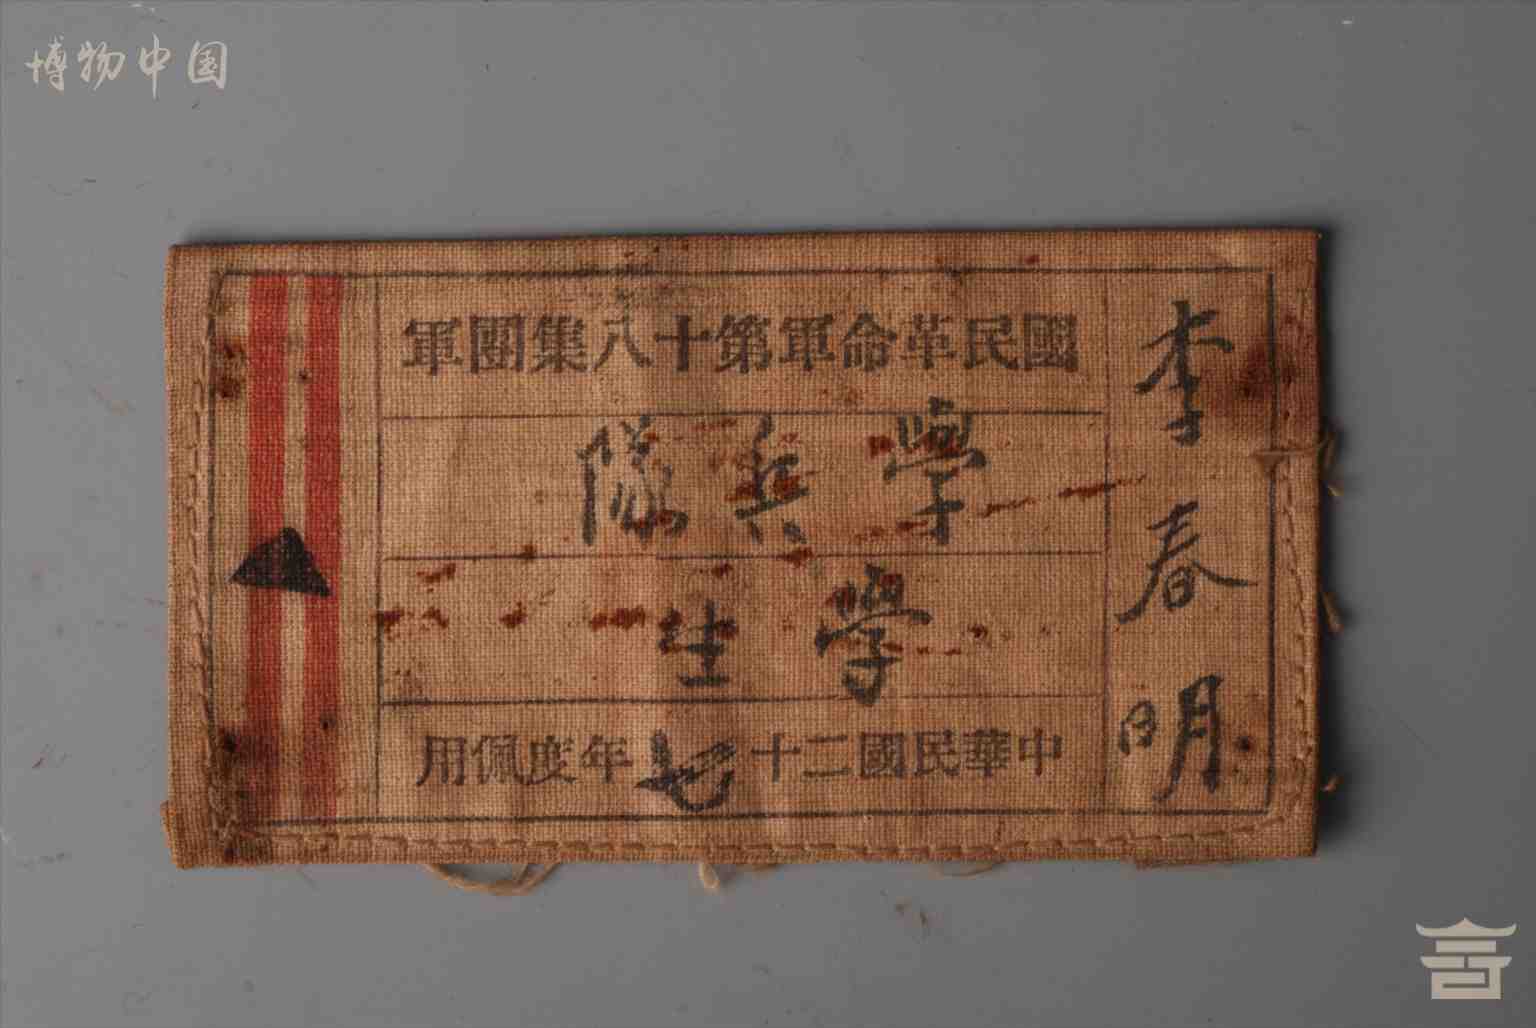 博物中国
國民革命軍第十八集團軍
學兵隊
學生
中華民國二十七年度佩用
李春明